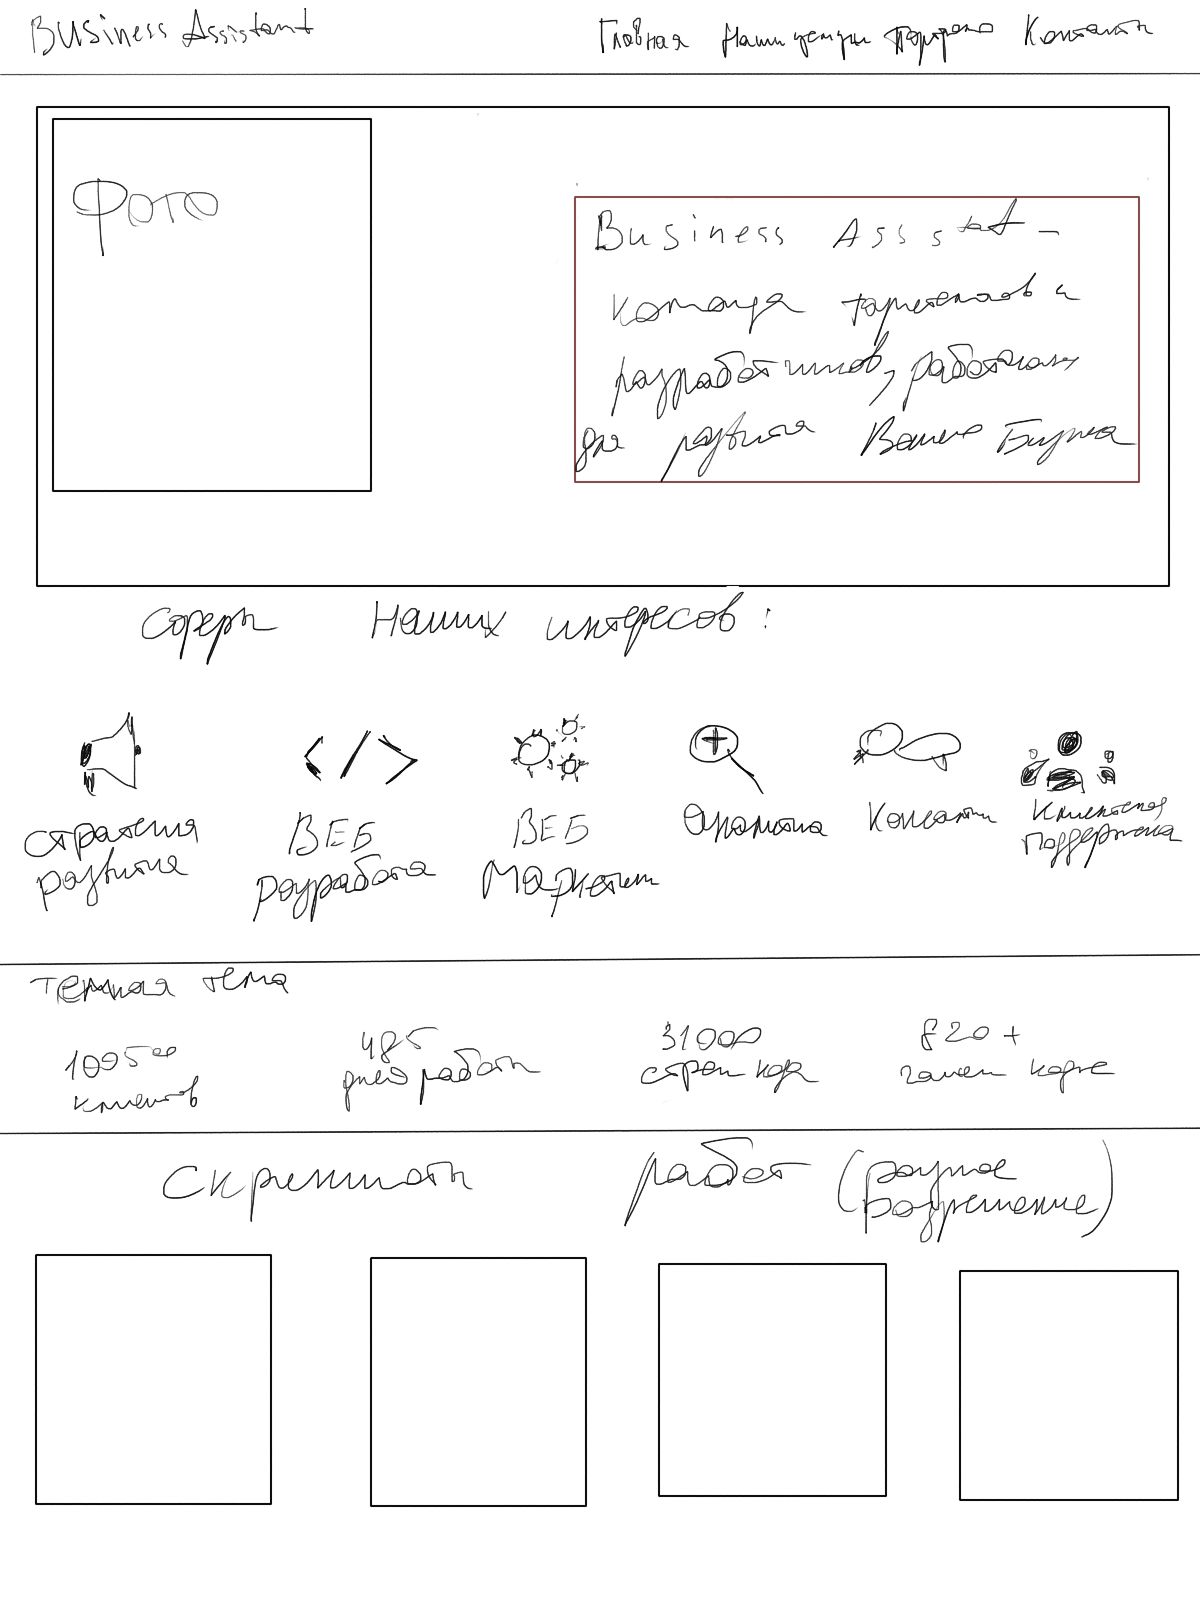 Business Assistant
Главная Наши услуги Портфолио Контакты
Фото
Business Assistant -
команда таргетологов и
разработчиков, работающих
для развития Вашего Бизнеса
Сферы Наших интересов:
Стратегия
развития
ВЕБ
разработа
ВЕБ
Маркетинг
Аналитика
Клиентская
поддержка
Темная тема
485
дней работы
31000
строк кода
820+
клиентов
Скриншоты работ (разное
разрешение)